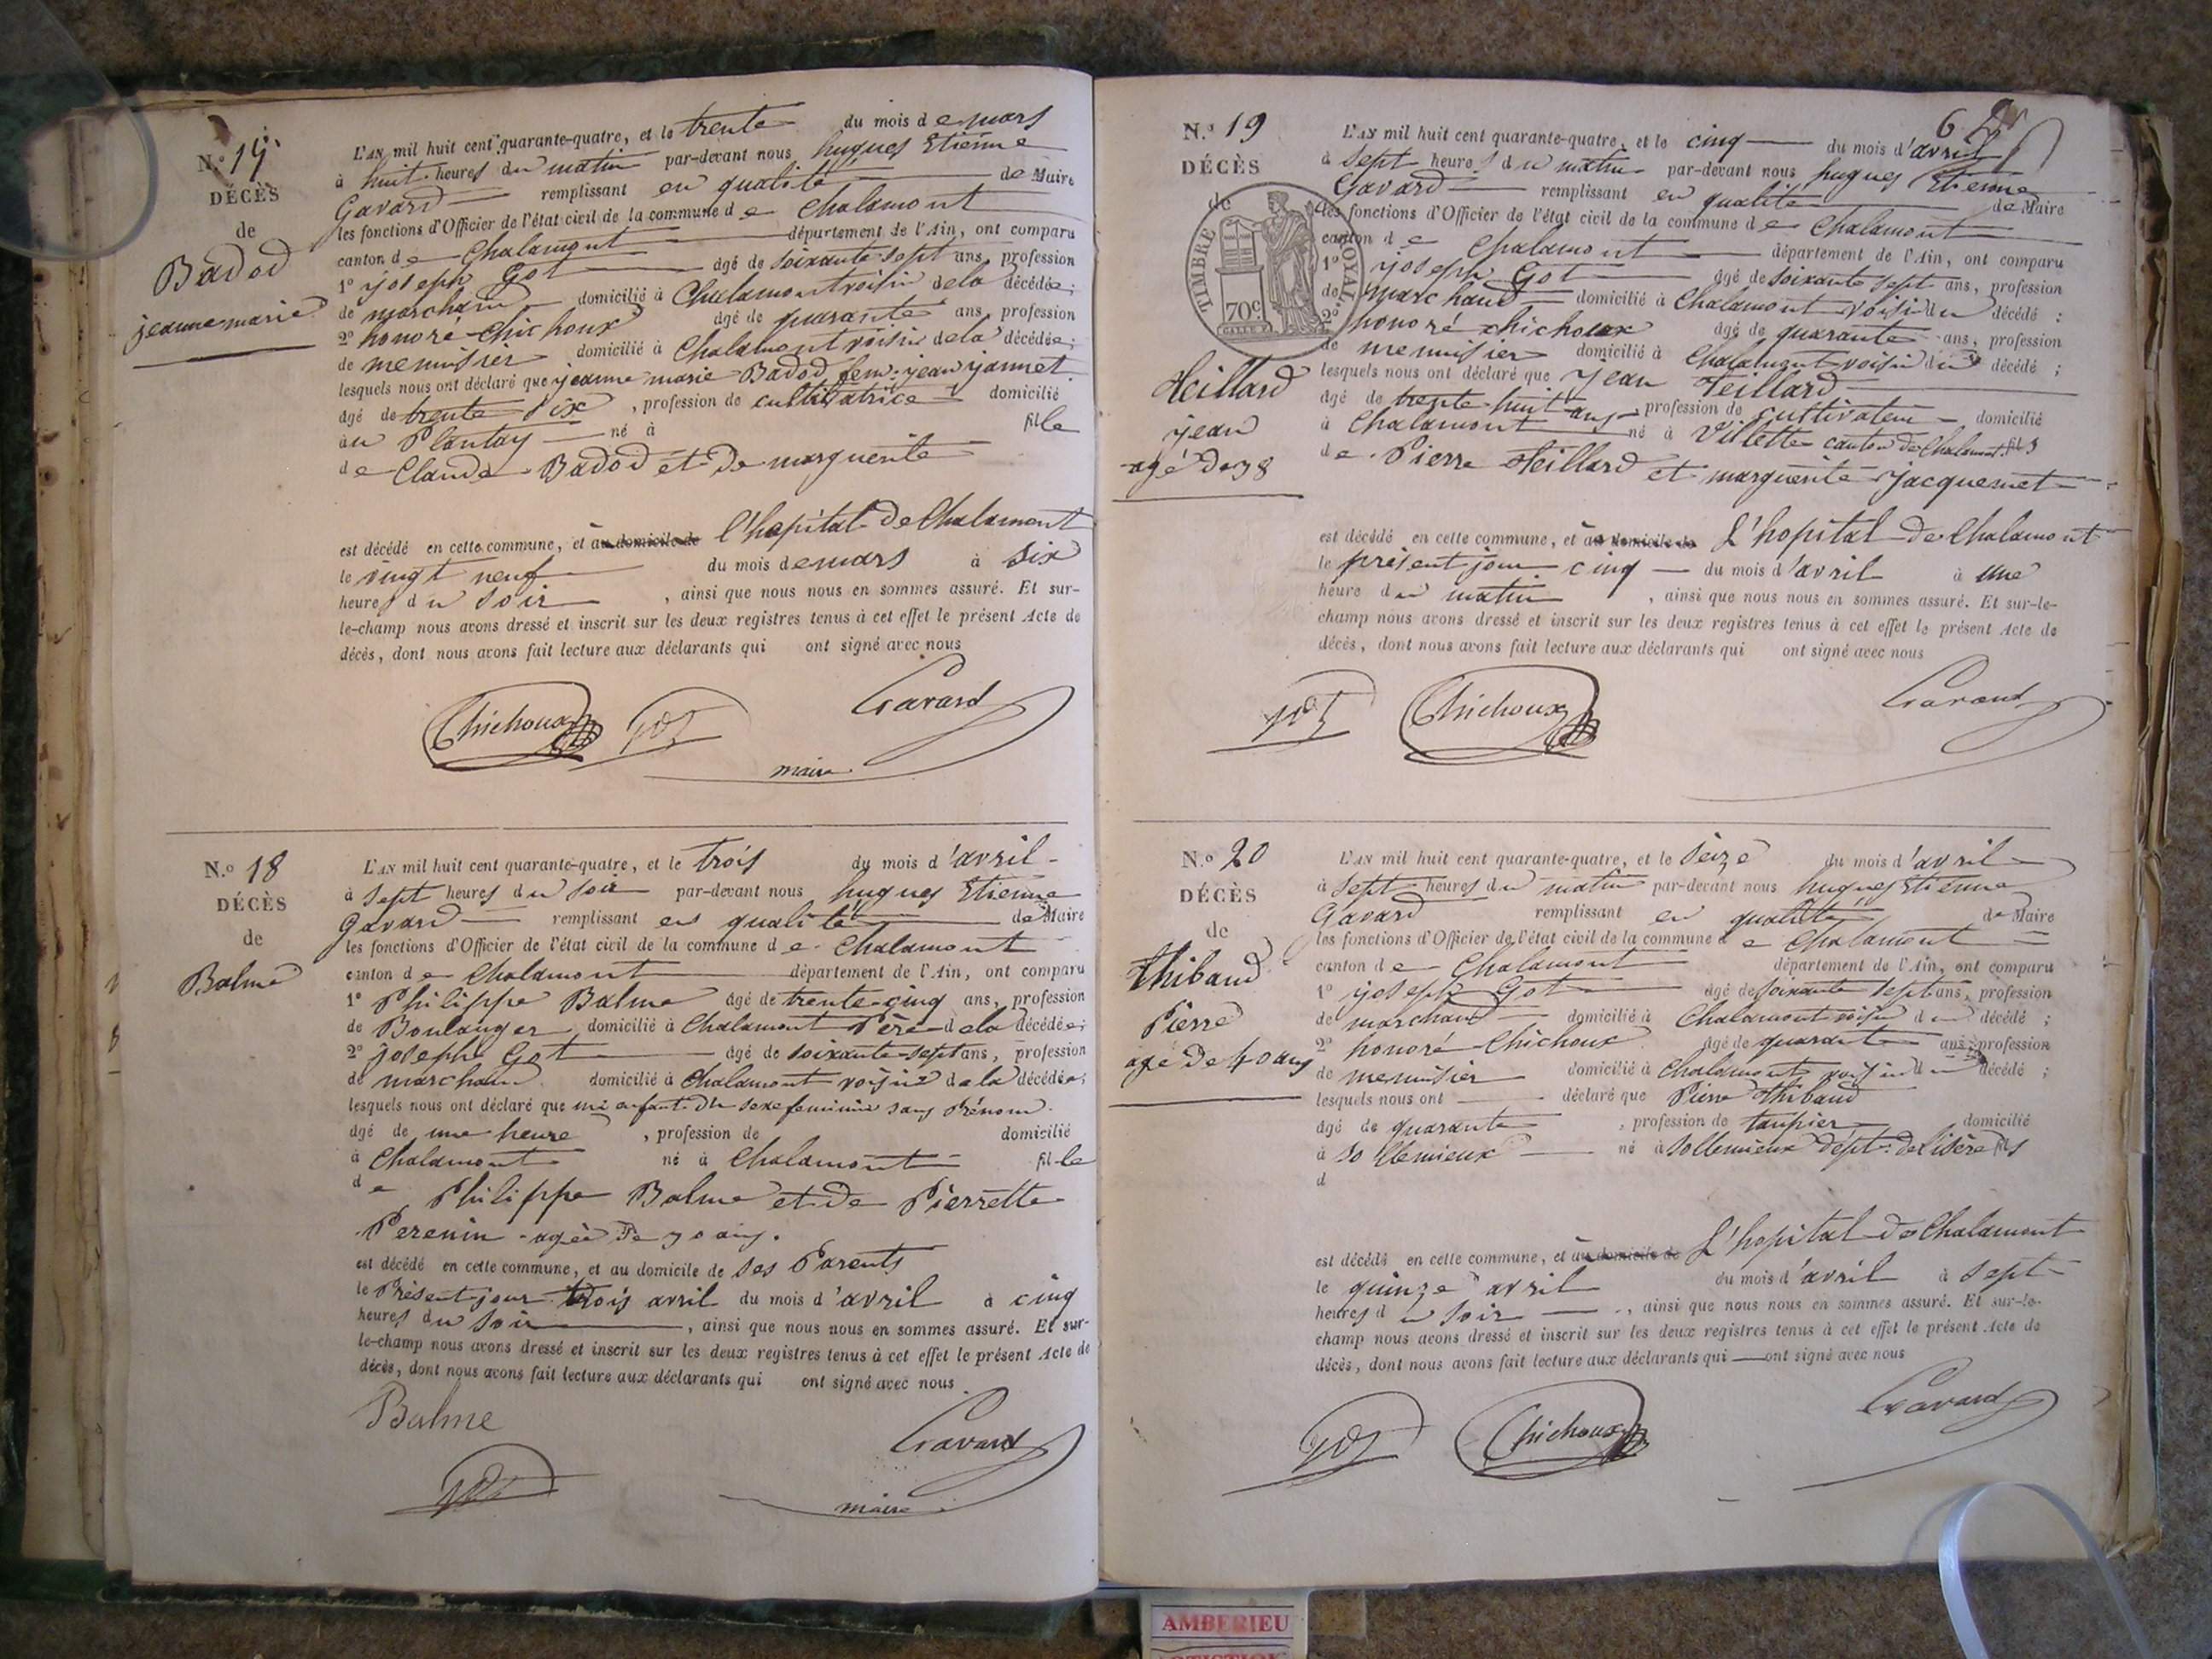 N.o 17.
DÉCÈS
de
Badod
jeanne marie
L'AN mil huit cent quarante-quatre, et le trente du mois de mars
à huit heures du matin par-devant nous hugues Etienne
Gavard remplissant en qualité de Maire
les fonctions d'Officier de l'état civil de la commune de Chalamont
canton de Chalamont département de l'Ain, ont comparu
1o joseph Got âgé de soixante sept ans, profession
de marchand domicilié à Chalamont voisin de la décédée;
2o honoré Chichoux âgé de quarante ans, profession
de menuisier domicilié à Chalamont voisin de la décédée;
lesquels nous ont déclaré que jeanne marie Badod fem. jean jannet
âgé de trente six, profession de cultivatrice domicilié
au Plantay né à fille
de Claude Badod et de marguerite
est décédé en cette commune, et au domicile de l'hopital de Chalamont
le vingt neuf du mois de mars à six
heures du soir, ainsi que nous nous en sommes assuré. Et sur-
le-champ nous avons dressé et inscrit sur les deux registres tenus à cet effet le présent Acte de
décès, dont nous avons fait lecture aux déclarants qui ont signé avec nous
Chichoux Got Gavard
maire
N.o 18
DÉCÈS
de
Balme
L'AN mil huit cent quarante-quatre, et le trois du mois d'avril
à sept heures du soir par-devant nous hugues Etienne
Gavard remplissant en qualité de Maire
les fonctions d'Officier de l'état civil de la commune de Chalamont
canton de Chalamont département de l'Ain, ont comparu
1o Philippe Balme âgé de trente-cinq ans, profession
de Boulanger domicilié à Chalamont Père de la décédée;
2o joseph Got âgé de soixante-sept ans, profession
de marchand domicilié à Chalamont voisin de la décédée;
lesquels nous ont déclaré que un enfant du sexe feminin sans Prénom.
âgé de une heure, profession de domicilié
à Chalamont né à Chalamont fille
de Philippe Balme et de Pierrette
Perenin agée de 30 ans.
est décédé en cette commune, et au domicile de ses Parents
le Présent jour trois avril du mois d'avril à cinq
heures du soir, ainsi que nous nous en sommes assuré. Et sur-
le-champ nous avons dressé et inscrit sur les deux registres tenus à cet effet le présent Acte de
décès, dont nous avons fait lecture aux déclarants qui ont signé avec nous
Balme Gavard
Got
maire
6
N.o 19
DÉCÈS
de
TIMBRE ROYAL
70c
Teillard
jean
agé de 38
L'AN mil huit cent quarante-quatre, et le cinq du mois d'avril
à sept heures du matin par-devant nous hugues Etienne
Gavard remplissant en qualité de Maire
les fonctions d'Officier de l'état civil de la commune de Chalamont
canton de Chalamont département de l'Ain, ont comparu
1o joseph Got âgé de soixante sept ans, profession
de marchand domicilié à Chalamont voisin du décédé;
2o honoré chichoux âgé de quarante ans, profession
de menuisier domicilié à Chalamont voisin du décédé;
lesquels nous ont déclaré que jean Teillard
âgé de trente huit ans profession de cultivateur domicilié
à Chalamont né à Villette canton de Chalamont fils
de Pierre Teillard et marguerite jacquemet
est décédé en cette commune, et au domicile de L'hopital de Chalamont
le présent jour cinq du mois d'avril à une
heure du matin, ainsi que nous nous en sommes assuré. Et sur-le-
champ nous avons dressé et inscrit sur les deux registres tenus à cet effet le présent Acte de
décès, dont nous avons fait lecture aux déclarants qui ont signé avec nous
Got Chichoux Gavard
N.o 20
DÉCÈS
de
Thibaud
Pierre
age de 40 ans
L'AN mil huit cent quarante-quatre, et le seize du mois d'avril
à sept heures du matin par-devant nous hugues Etienne
Gavard remplissant en qualité de Maire
les fonctions d'Officier de l'état civil de la commune de Chalamont
canton de Chalamont département de l'Ain, ont comparu
1o joseph Got âgé de soixante sept ans, profession
de marchand domicilié à Chalamont voisin du décédé;
2o honoré Chichoux âgé de quarante ans, profession
de menuisier domicilié à Chalamont voisin du décédé;
lesquels nous ont déclaré que Pierre Thibaud
âgé de quarante, profession de taupier domicilié
à Sollemieux né à Sollemieux dépt. de l'isère fils
d
est décédé en cette commune, et au domicile de L'hopital de Chalamont
le quinze avril du mois d'avril à sept
heures du soir, ainsi que nous nous en sommes assuré. Et sur-le-
champ nous avons dressé et inscrit sur les deux registres tenus à cet effet le présent Acte de
décès, dont nous avons fait lecture aux déclarants qui ont signé avec nous
Got Chichoux Gavard
AMBERIEU